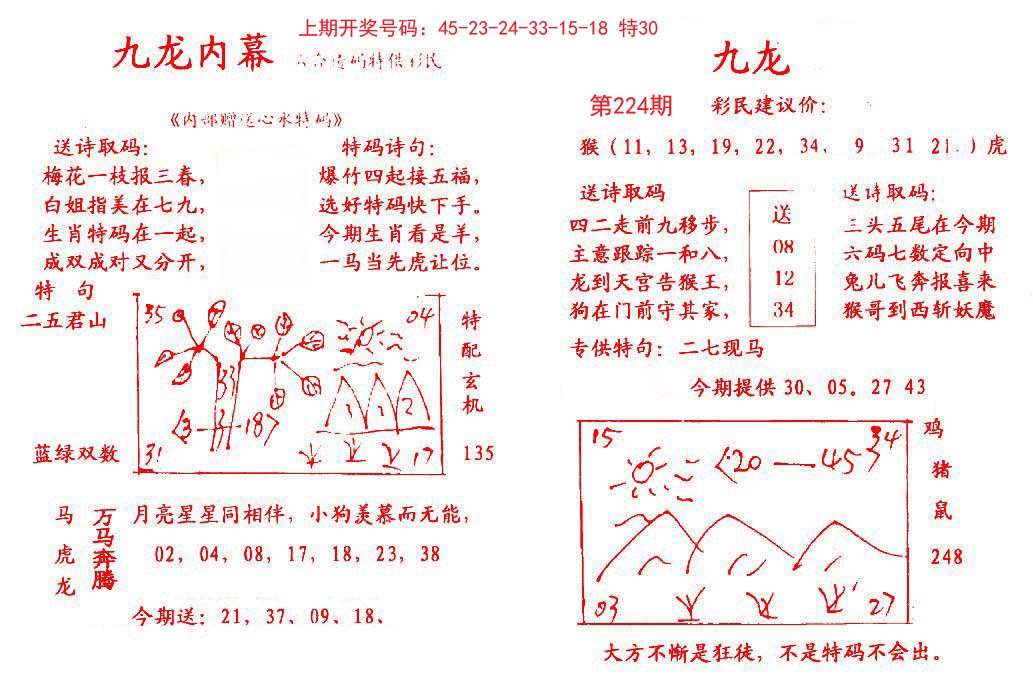 上期开奖号码：45-23-24-33-15-18 特30
九龙内幕
码特供彩民
《内部赠送心水特码》
送诗取码：
梅花一枝报三春，
白姐指美在七九，
生肖特码在一起，
成双成对又分开，
特码诗句：
爆竹四起接五福，
选好特码快下手。
今期生肖看是羊，
一马当先虎让位。
特 句
二五君山
蓝绿双数
35
04
33
1
1
2
31
17
特配玄机
135
马虎龙
万马奔腾
月亮星星同相伴，小狗羡慕而无能，
02，04，08，17，18，23，38
今期送：21、37、09、18、
九龙
第224期
彩民建议价：
猴（11，13，19，22，34， 9 31 21.）虎
送诗取码
四二走前九移步，
主意跟踪一和八，
龙到天宫告猴王，
狗在门前守其家，
送
08
12
34
送诗取码；
三头五尾在今期
六码七数定向中
兔儿飞奔报喜来
猴哥到西斩妖魔
专供特句：二七现马
今期提供 30、05。27 43
15
34
20—45
03
27
鸡
猪
鼠
248
大方不惭是狂徒，不是特码不会出。